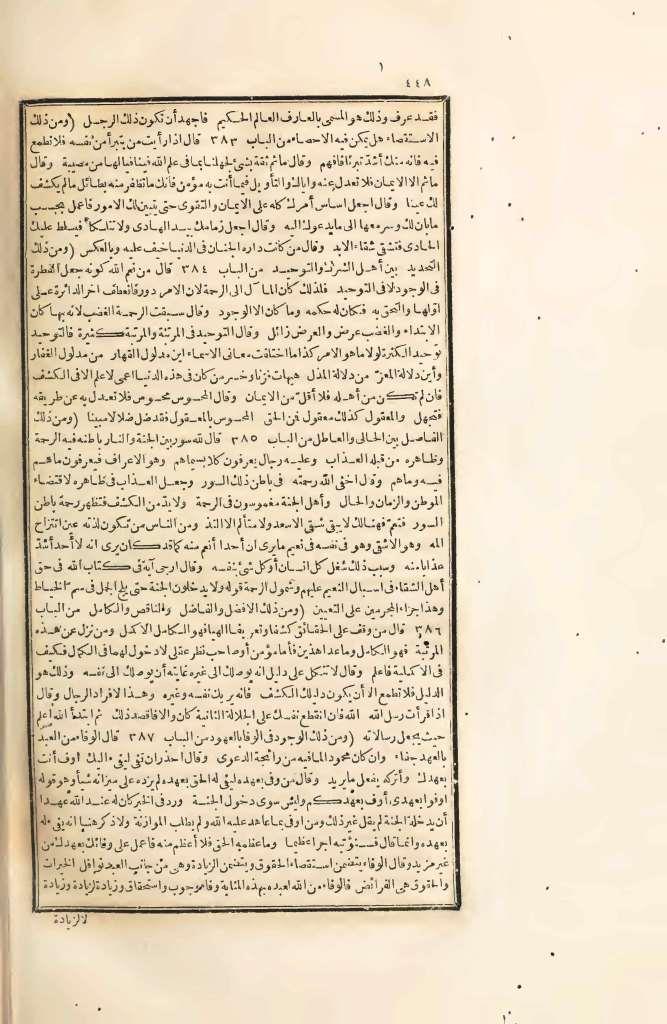 ٤٤٨
فقد عرف وذلك هو المسمى بالعارف العالم الحكيم فاجهد أن تكون ذلك الرجل (ومن ذلك
الاستقصاء هل يمكن فيه الاحصاء من الباب ٣٨٣ قال اذا رأيت من يتبرأ من نفسه فلا تطمع
فيه فانه منك أشد تبرئا فافهم وقال ماثم ثقة بشئ لجهلنا بما فى علم الله فينا فيالها من مصيبة وقال
ماثم الا الايمان فلا تعدل عنه واياك والتأويل فيما أنت به مؤمن فانك ما تظفر منه بطائل ما لم يكشف
لك عينا وقال اجعل اساس أمرك كله على الايمان والتقوى حتى يتبين لك الامور فاعمل بحسب
ما بان لك وسر معها الى ما يدعوك اليه وقال اجعل زمامك بيد الهادى ولا تتلكأ فيسلط عليك
الحادى فتشقى شقاء الابد وقال من كانت داره الجنان فى الدنيا خيف عليه وبالعكس (ومن ذلك
التحديد بين أهل الشرك والتوحيد من الباب ٣٨٤ قال من نعم الله كونه جعل الفطرة
فى الوجود لا فى التوحيد فلذلك كان المآل الى الرحمة لان الامر دور فانعطف اخر الدائرة على
اولها والتحق به فكان له حكمه وما كان الا الوجود وقال سبقت الرحمة الغضب لانه بها كان
الابتداء والغضب عرض والعرض زائل وقال التوحيد فى المرتبة والمرتبة كثيرة فالتوحيد
توحيد الكثرة لولا ما هو الامر كذا ما اختلفت معانى الاسماء اين مدلول القهار من مدلول الغفار
وأين دلالة المعز من دلالة المذل هيهات فزنا وخسر من كان فى هذه الدنيا اعمى لا علم الا فى الكشف
فان لم تكن من أهله فلا أقل من الايمان وقال المحسوس محسوس فلا تعدل به عن طريقه
فتجهل والمعقول كذلك معقول فمن الحق المحسوس بالمعقول فقد ضل ضلالا مبينا (ومن ذلك
الفاصل بين الحالى والعاطل من الباب ٣٨٥ قال لله سور بين الجنة والنار باطنه فيه الرحمة
وظاهره من قبله العذاب وعليه رجال يعرفون كلا بسيماهم وهو الاعراف فيعرفون ما هم
فيه وما هم وقال اخفى الله رحمته فى باطن ذلك السور وجعل العذاب فى ظاهره لاقتضاء
الموطن والزمان والحال وأهل الجنة مغموسون فى الرحمة ولا بد من الكشف فتظهر رحمة باطن
السور فتعم فهنالك لا يبقى شقى الا سعد ولا متألم الا التذ ومن الناس من تكون لذته عين انتزاح
المه وهو الاشقى وهو فى نفسه فى نعيم ما يرى ان أحدا أنعم منه كما قد كان يرى انه لا أحد أشد
عذابا منه وسبب ذلك شغل كل انسان أو كل شئ بنفسه وقال ارجى آية فى كتاب الله فى حق
أهل الشقاء فى اسبال النعيم عليهم وشمول الرحمة قوله ولا يدخلون الجنة حتى يلج الجمل فى سم الخياط
وهذا جزاء المجرمين على التعيين (ومن ذلك الافضل والفاضل والناقص والكامل من الباب
٣٨٦ قال من وقف على الحقائق كشفا وتعريفا الهيا فهو الكامل الاكمل ومن نزل عن هذه
المرتبة فهو الكامل وما عدا هذين فاما مؤمن أو صاحب نظر عقلى لا دخول لهما فى الكمال فكيف
فى الاكملية فاعلم وقال لا تتكل على دليل انه يوصلك الى غيره غايته أن يوصلك الى نفسه وذلك هو
الدليل فلا تطمع الا أن يكون دليلك الكشف فانه يريك نفسه وغيره وهذا لافراد الرجال وقال
اذا قرأت رسل الله الله فان انقطع نفسك على الجلالة الثانية كان والا فاقصد ذلك ثم ابتدئ الله أعلم
حيث يجعل رسالاته (ومن ذلك الوجود فى الوفا بالعهود من الباب ٣٨٧ قال الوفاء من العبد
بالعهد جفاء وان كان محمودا لما فيه من رائحة الدعوى وقال احذر ان تفى ليفى اليك اوف أنت
بعهدك وأتركه يفعل ما يريد وقال من وفى بعهده ليفى له الحق بعهده لم يزده على ميزانه شيأ وهو قوله
اوفوا بعهدى أوف بعهدكم وليس سوى دخول الجنة ورد فى الخبر كان له عند الله عهدا
أن يدخله الجنة لم يقل غير ذلك ومن اوفى بما عاهد عليه الله ولم يطلب الموازنة ولا ذكر هنا انه يفى له
بعهده وانما قال فسنؤتيه اجرا عظيما وما عظمه الحق فلا أعظم منه فاعمل على وفائك بعهدك من
غير مزيد وقال الوفاء يتضمن استقصاء الحقوق ويتضمن الزيادة وهى من جانب العبد نوافل الخيرات
والحقوق هى الفرائض فالوفاء من الله لعبده بهذه المثابة وفا موجوب واستحقاق وزيادة لزيادة وزيادة
لا لزيادة